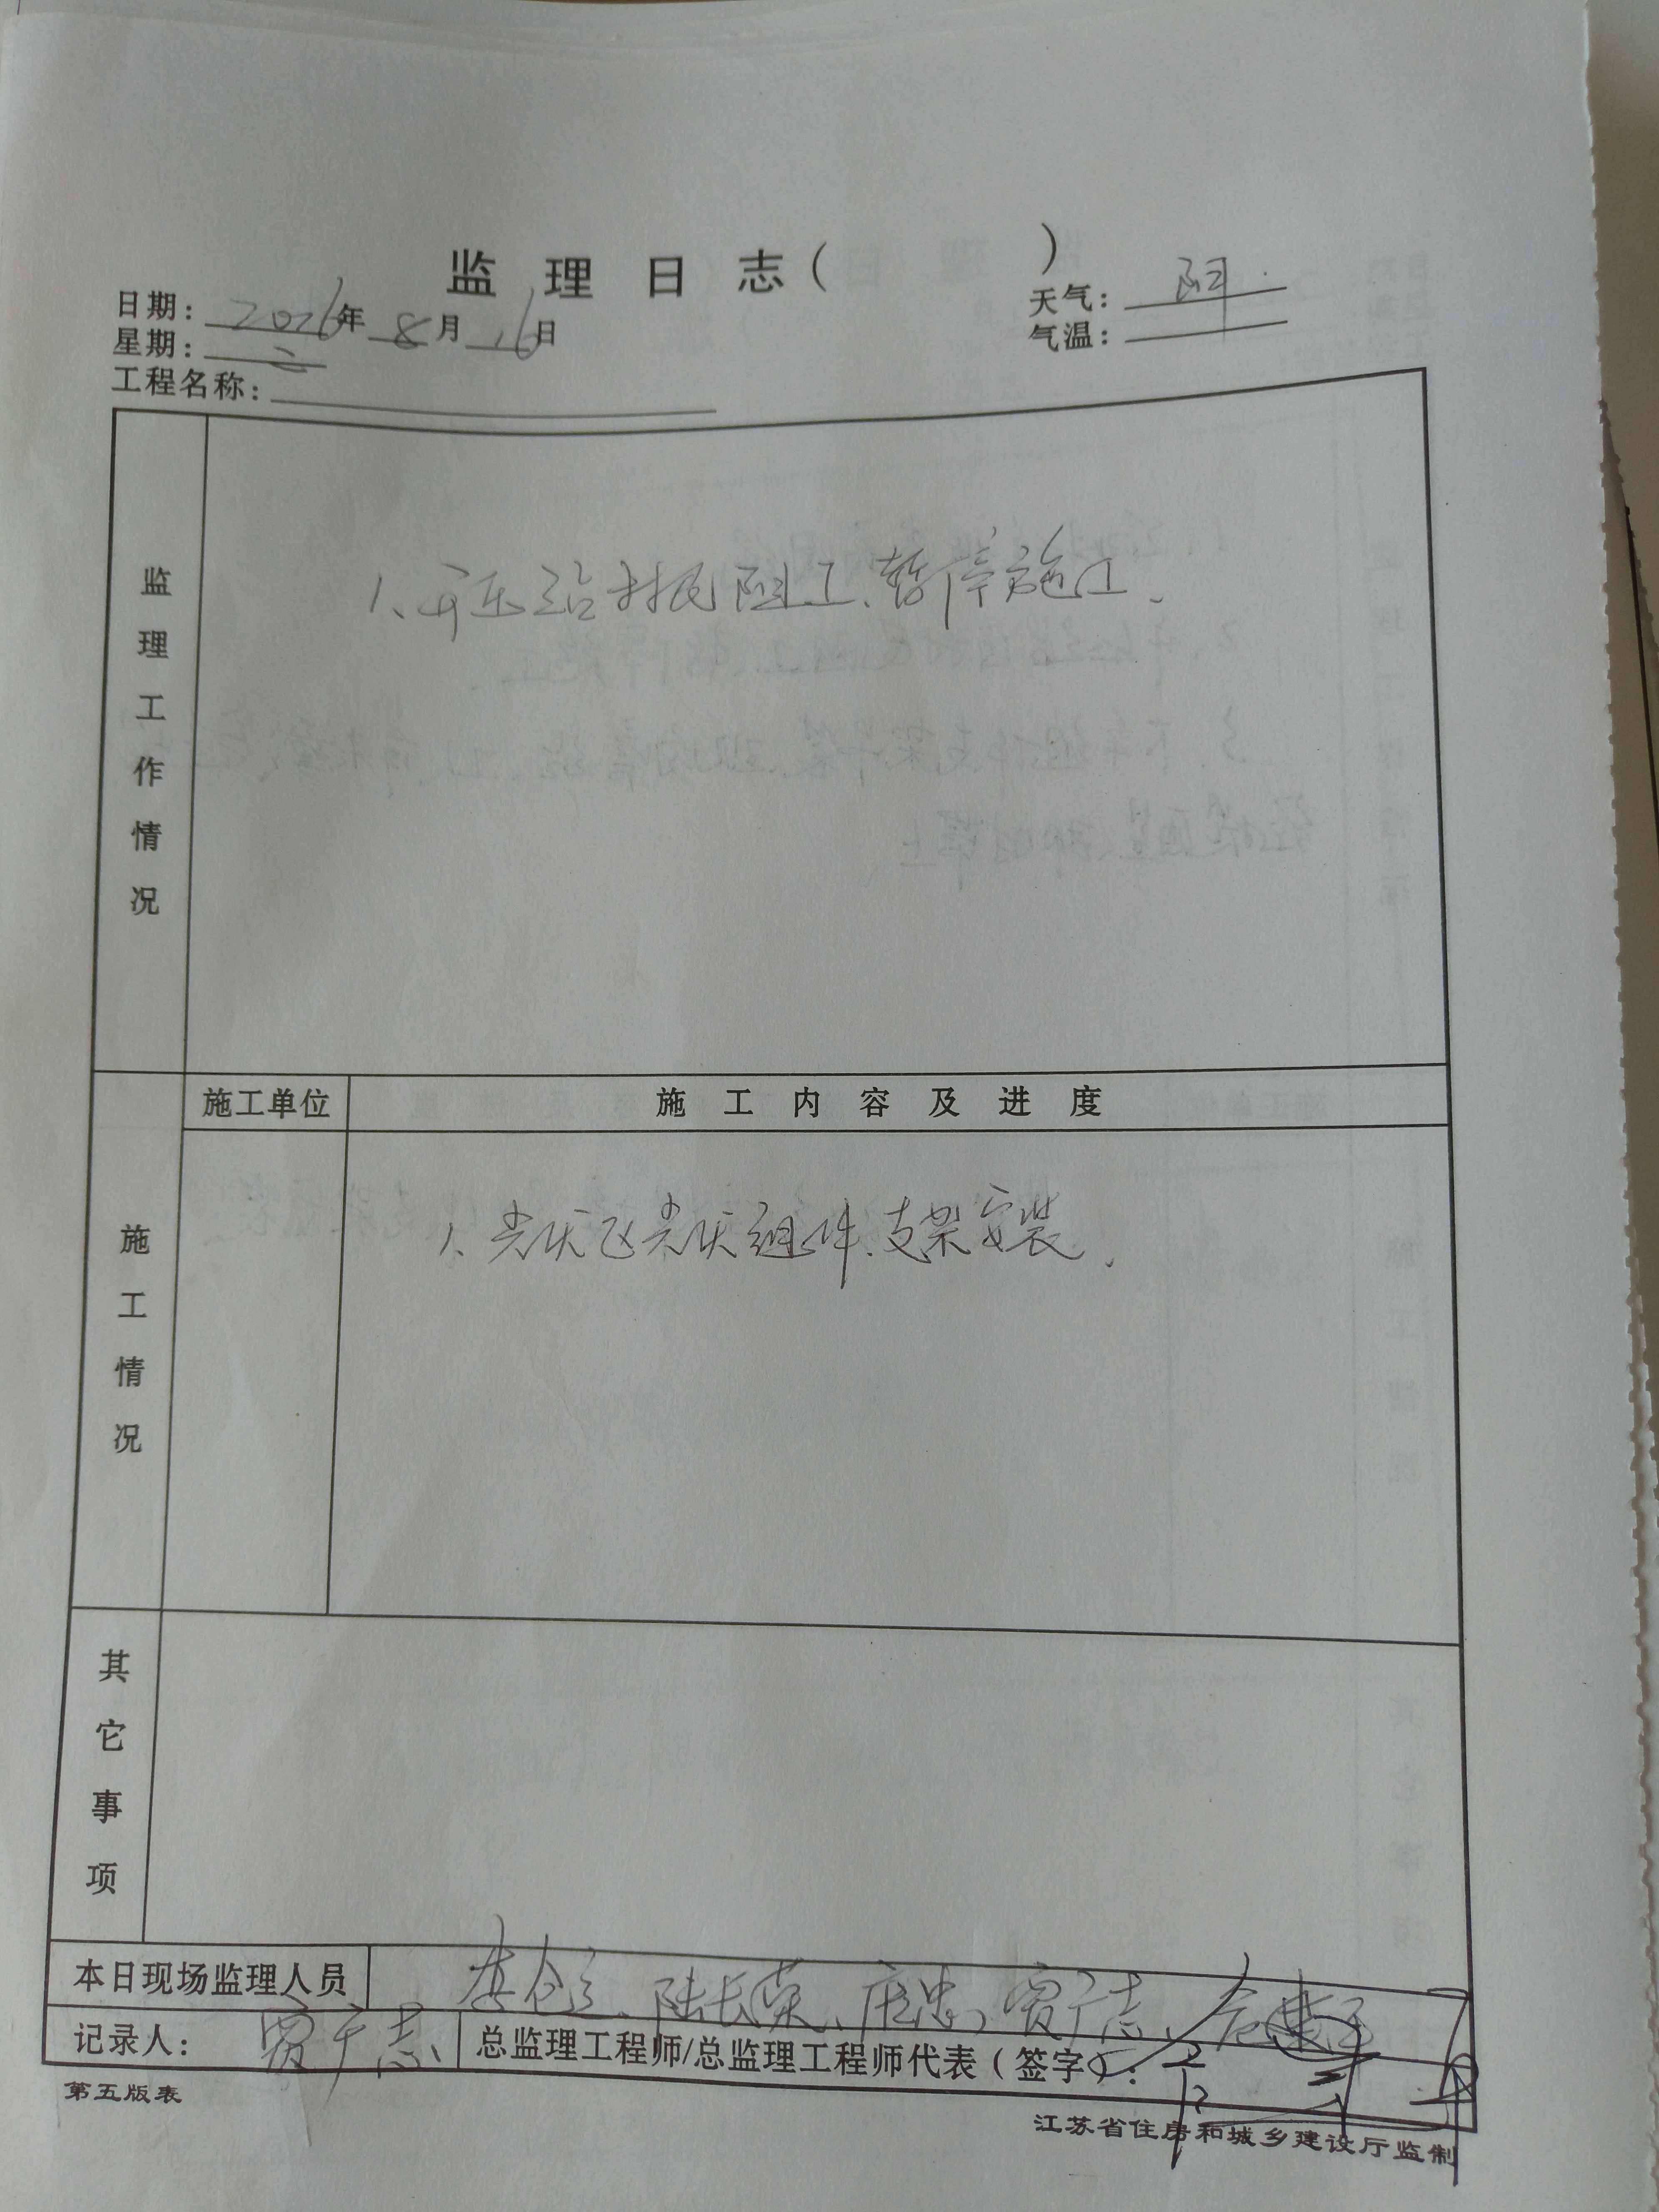 监理日志（ ）
日期： 2016年 8月 16日 天气： 阴
星期： 二 气温：
工程名称：
监理工作情况
1、升压站村民阻工、暂停施工.
施工单位 施工内容及进度
施工情况
1、光伏区光伏组件、支架安装.
其它事项
本日现场监理人员 陆长荣、庄忠、贾广志、
记录人： 贾广志 总监理工程师/总监理工程师代表（签字）：
第五版表 江苏省住房和城乡建设厅监制